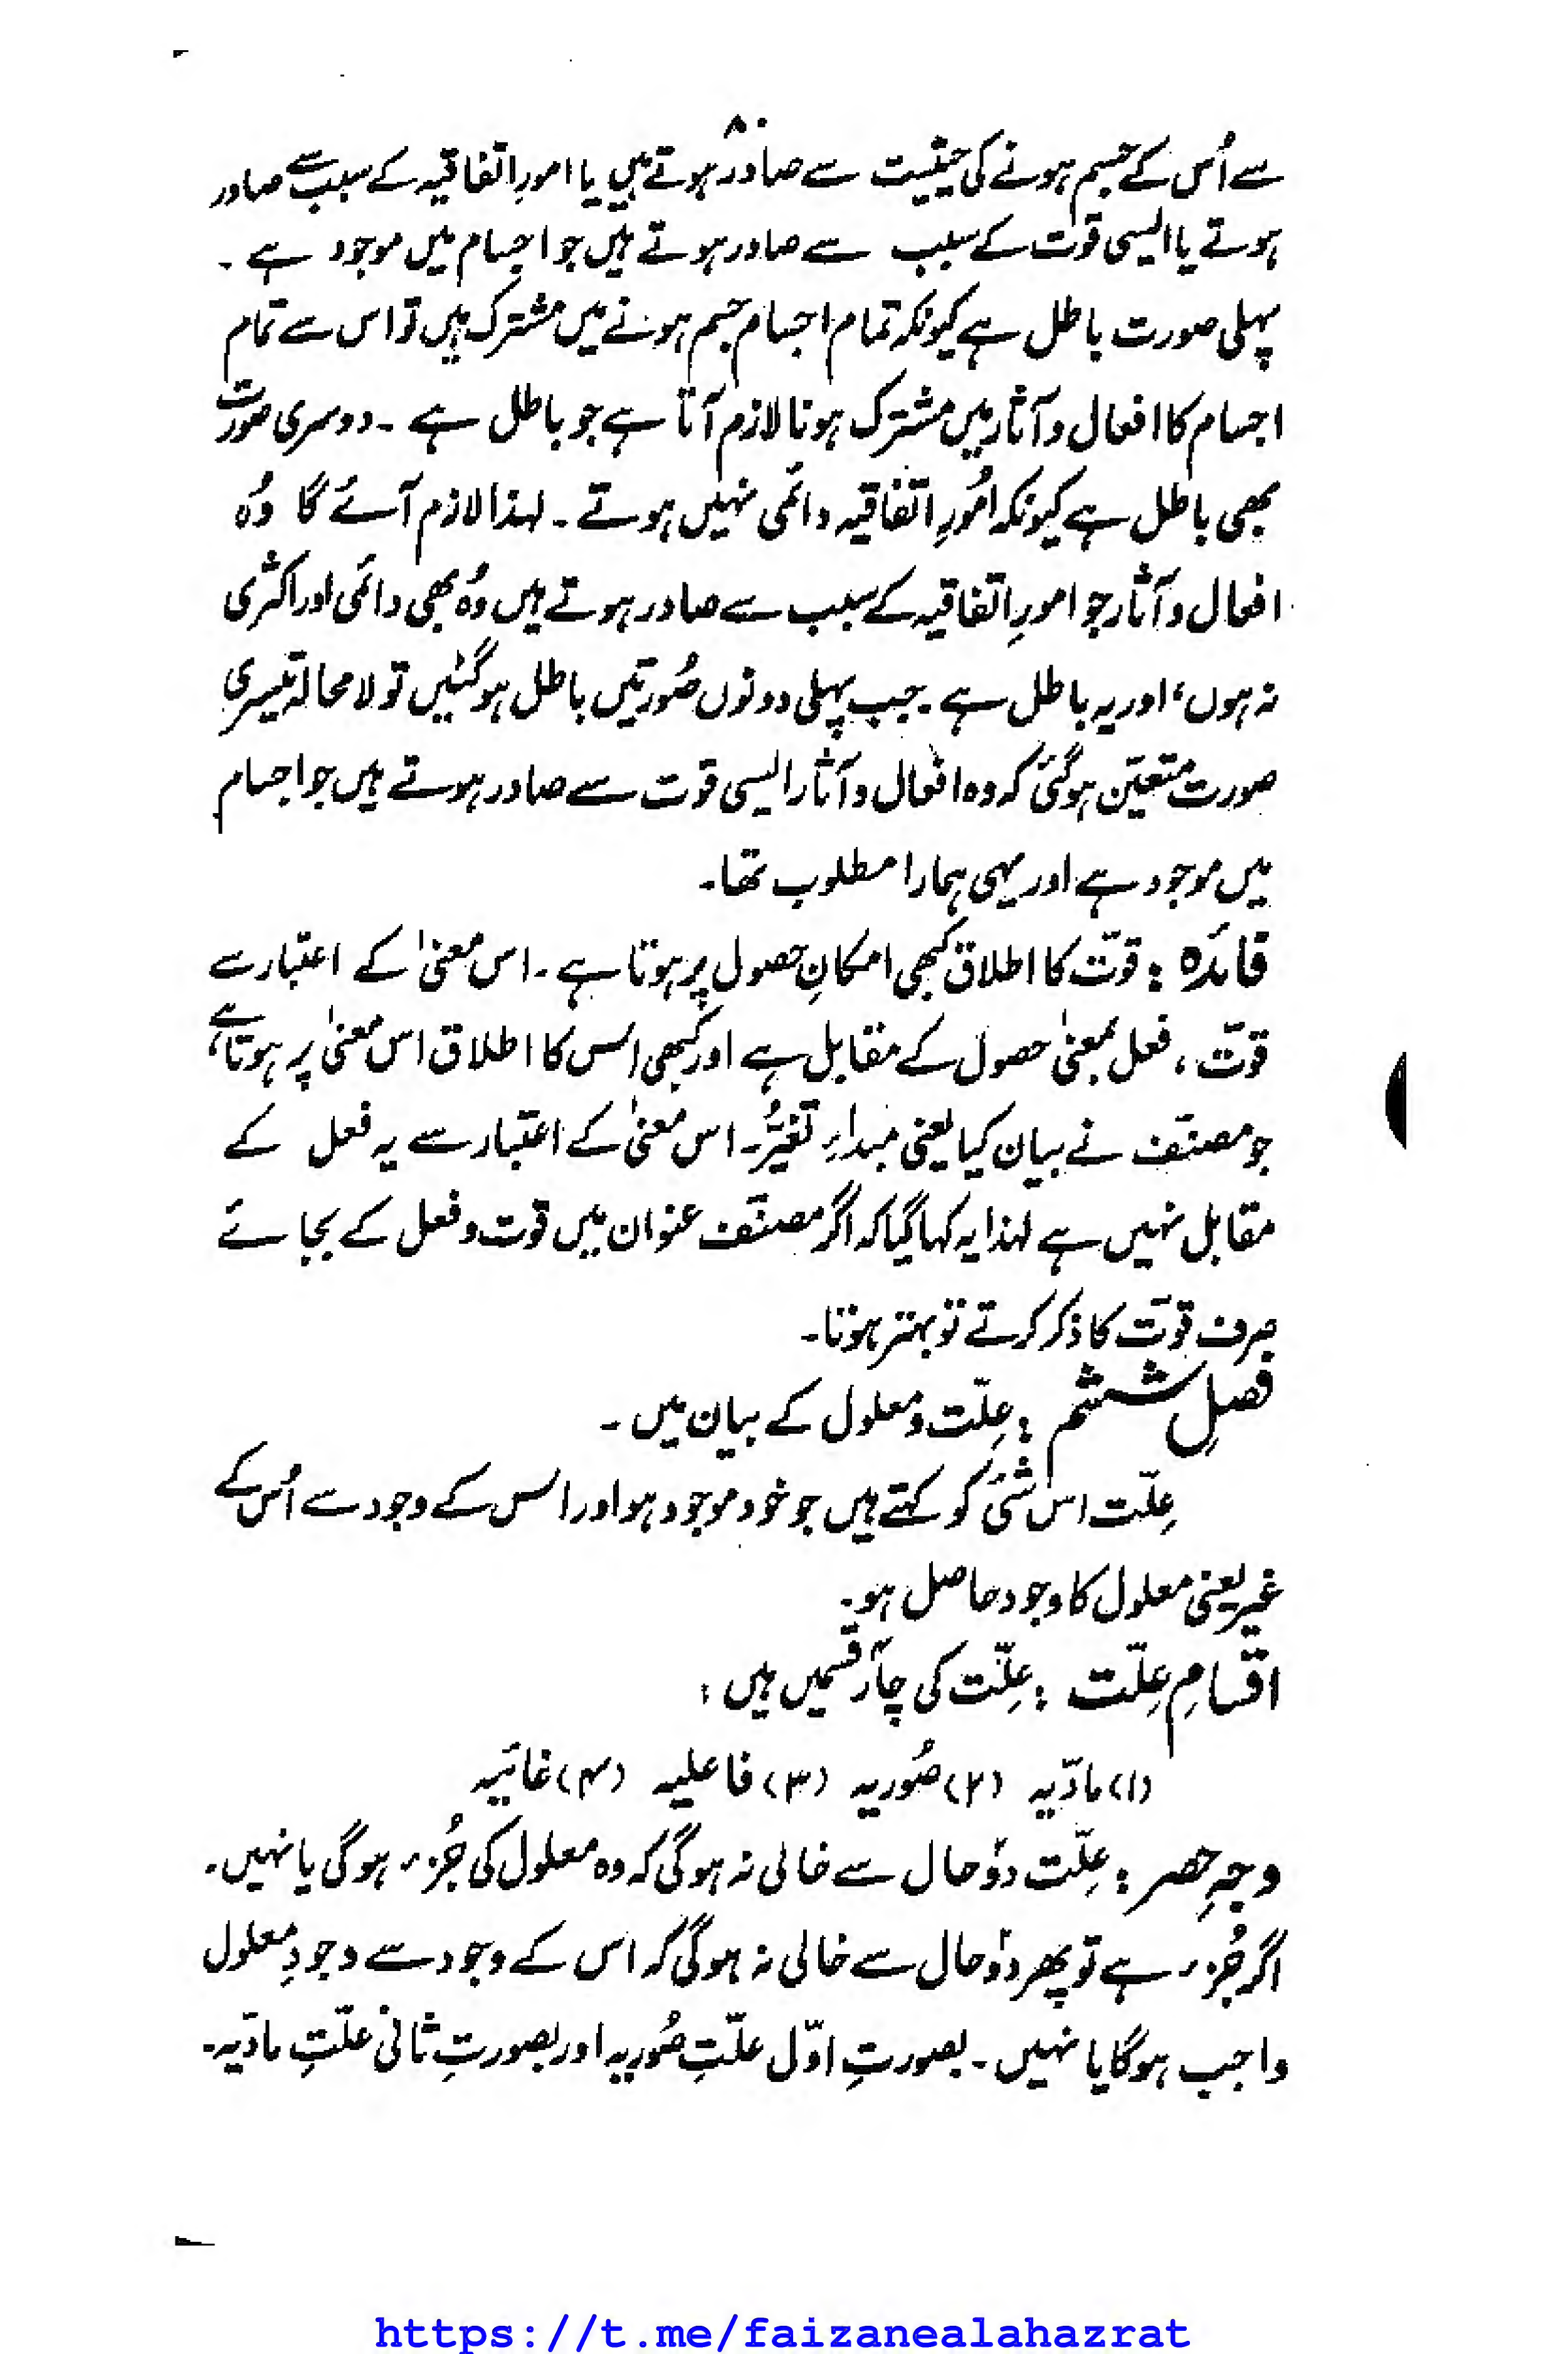 ۸۰
سے اُس کے جسم ہونے کی حیثیت سے صادر ہوتے ہیں یا امورِ اتفاقیہ کے سبب سے صادر
ہوتے یا ایسی قوت کے سبب سے صادر ہوتے ہیں جو اجسام میں موجود ہے ۔
پہلی صورت باطل ہے کیونکہ تمام اجسام جسم ہونے میں مشترک ہیں تو اس سے تمام
اجسام کا افعال و آثار میں مشترک ہونا لازم آتا ہے جو باطل ہے ۔ دوسری صورت
بھی باطل ہے کیونکہ امُورِ اتفاقیہ دائمی نہیں ہوتے ۔ لہذا لازم آئے گا وُہ
افعال و آثار جو امورِ اتفاقیہ کے سبب سے صادر ہوتے ہیں وُہ بھی دائمی اور اکثری
نہ ہوں ، اور یہ باطل ہے ۔ جب پہلی دونوں صُورتیں باطل ہوگئیں تو لامحالہ تیسری
صورت متعیّن ہوگئی کہ وہ افعال و آثار ایسی قوت سے صادر ہوتے ہیں جو اجسام
میں موجود ہے اور یہی ہمارا مطلوب تھا۔
فائدہ : قوّت کا اطلاق کبھی امکانِ حصول پر ہوتا ہے ۔ اس معنیٰ کے اعتبار سے
قوّت ، فعل بمعنیٰ حصول کے مقابل ہے اور کبھی اس کا اطلاق اس معنیٰ پر ہوتا ہے ،
جو مصنّف نے بیان کیا یعنی مبداءِ تغیُّر۔ اس معنیٰ کے اعتبار سے یہ فعل کے
مقابل نہیں ہے لہذا یہ کہا گیا کہ اگر مصنّف عنوان میں قوت و فعل کے بجائے
صرف قوّت کا ذکر کرتے تو بہتر ہوتا۔
فصلِ ششم : عِلّت و معلول کے بیان میں ۔
عِلّت اس شئی کو کہتے ہیں جو خود موجود ہو اور اس کے وجود سے اُس کے
غیر یعنی معلول کا وجود حاصل ہو۔
اقسامِ عِلّت : عِلّت کی چار قسمیں ہیں :
(۱) مادّیہ (۲) صُوریہ (۳) فاعلیہ (۴) غائیہ
وجہِ حصر : عِلّت دو حال سے خالی نہ ہوگی کہ وہ معلول کی جُزء ہوگی یا نہیں۔
اگر جُزء ہے تو پھر دو حال سے خالی نہ ہوگی کہ اس کے وجود سے وجودِ معلول
واجب ہوگا یا نہیں ۔ بصورتِ اوّل علّتِ صُوریہ اور بصورتِ ثانی علّتِ مادّیہ۔
https://t.me/faizanealahazrat